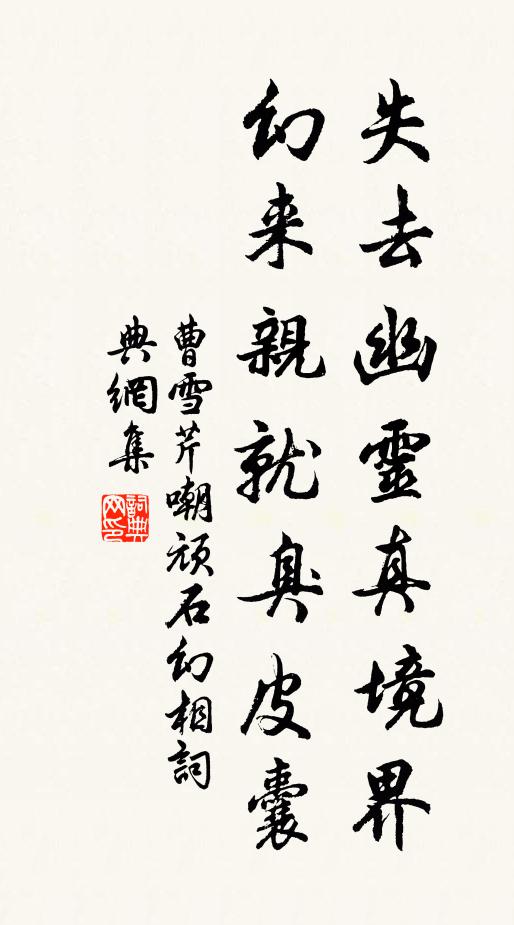 失去幽靈真境界
幻来親就臭皮囊
曹雪芹嘲頑石幻相詞
典網集
詞典网印